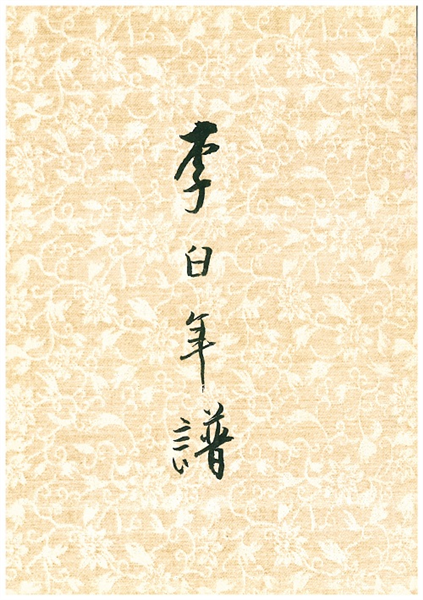 李白年譜